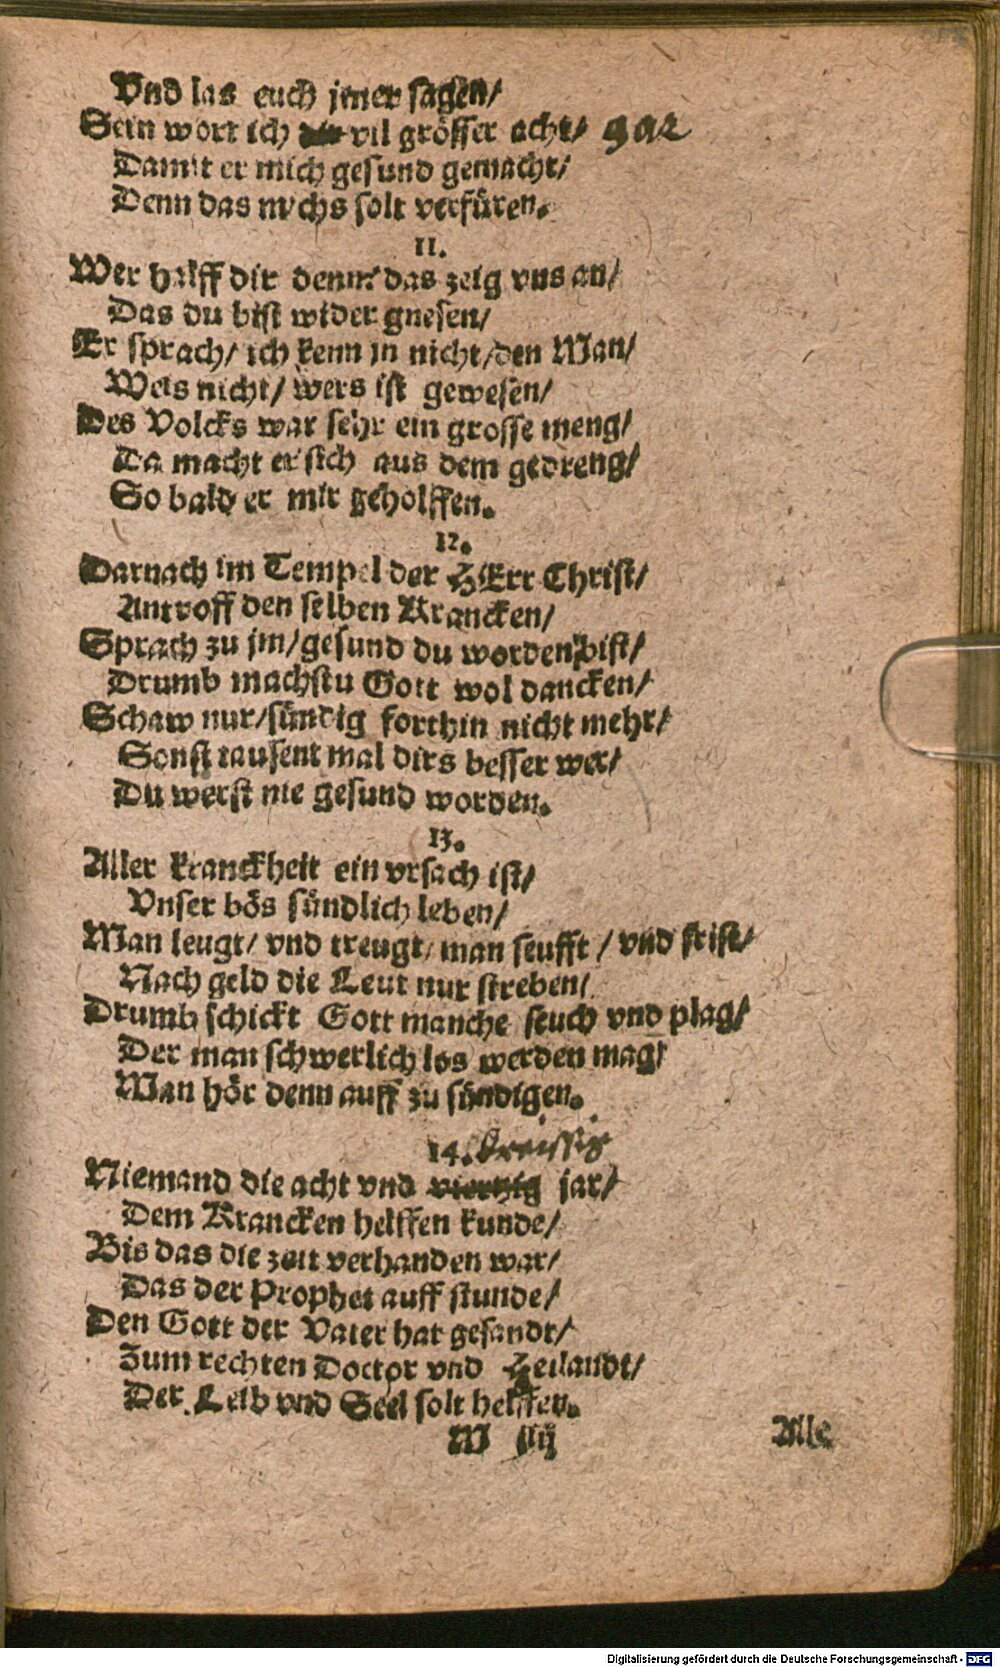 Vnd las euch jmer sagen/
Sein wort ich vil grösser acht/ gar
Damit er mich gesund gemacht/
Denn das michs solt verfüren.
11.
Wer halff dir denn? das zeig vns an/
Das du bist wider gnesen/
Er sprach/ ich kenn jn nicht/den Man/
Weis nicht/ wers ist gewesen/
Des Volcks war sehr ein grosse meng/
Da macht er sich aus dem gedreng/
So bald er mir geholffen.
12.
Darnach im Tempel der HErr Christ/
Antroff den selben Krancken/
Sprach zu jm/gesund du worden bist/
Drumb machstu Gott wol dancken/
Schaw nur/sündig forthin nicht mehr/
Sonst tausent mal dirs besser wer/
Du werst nie gesund worden.
13.
Aller kranckheit ein vrsach ist/
Vnser bös sündlich leben/
Man leugt/ vnd treugt/man seufft / vnd frist/
Nach geld die Leut nur streben/
Drumb schickt Gott manche seuch vnd plag/
Der man schwerlich los werden mag/
Man hör denn auff zu sündigen.
14. dreissig
Niemand die acht vnd viertzig jar/
Dem Krancken helffen kunde/
Bis das die zeit verhanden war/
Das der Prophet auff stunde/
Den Gott der Vater hat gesandt/
Zum rechten Doctor vnd Heilandt/
Der Leib vnd Seel solt helffen.
M iij Alle
Digitalisierung gefördert durch die Deutsche Forschungsgemeinschaft - DFG